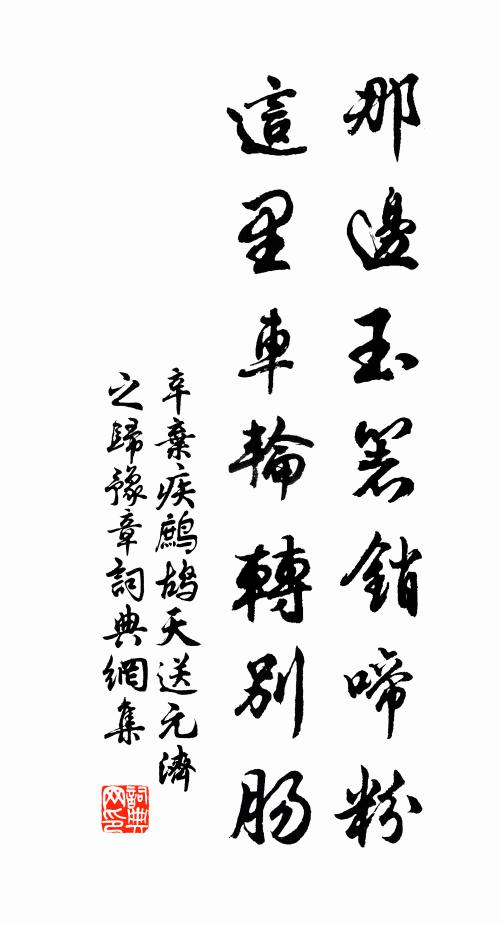 那邊玉箸銷啼粉
這里車輪轉別腸
辛棄疾鷓鴣天送元濟
之歸豫章詞典網集
詞典网印